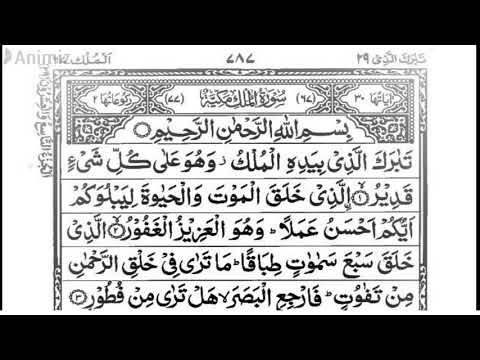 Animiz
تبٰرك الذی ٢٩
٧٨٧
الملك ٦٧
اٰیاتها ٣٠
(٦٧) سُوْرَةُ الْمُلْكِ مَكِّيَّةٌ (٧٧)
رکوعاتها ٢
بِسْمِ اللّٰهِ الرَّحْمٰنِ الرَّحِيْمِ
تَبٰرَكَ الَّذِیْ بِیَدِهِ الْمُلْكُ ز وَهُوَ عَلٰی كُلِّ شَیْءٍ
قَدِیْرُ ۙ﴿١﴾ اۨلَّذِیْ خَلَقَ الْمَوْتَ وَالْحَیٰوةَ لِیَبْلُوَكُمْ
اَیُّكُمْ اَحْسَنُ عَمَلًا ؕ وَهُوَ الْعَزِیْزُ الْغَفُوْرُ ۙ﴿٢﴾ الَّذِیْ
خَلَقَ سَبْعَ سَمٰوٰتٍ طِبَاقًا ؕ مَا تَرٰی فِیْ خَلْقِ الرَّحْمٰنِ
مِنْ تَفٰوُتٍ ؕ فَارْجِعِ الْبَصَرَ ۙ هَلْ تَرٰی مِنْ فُطُوْرٍ ﴿٣﴾